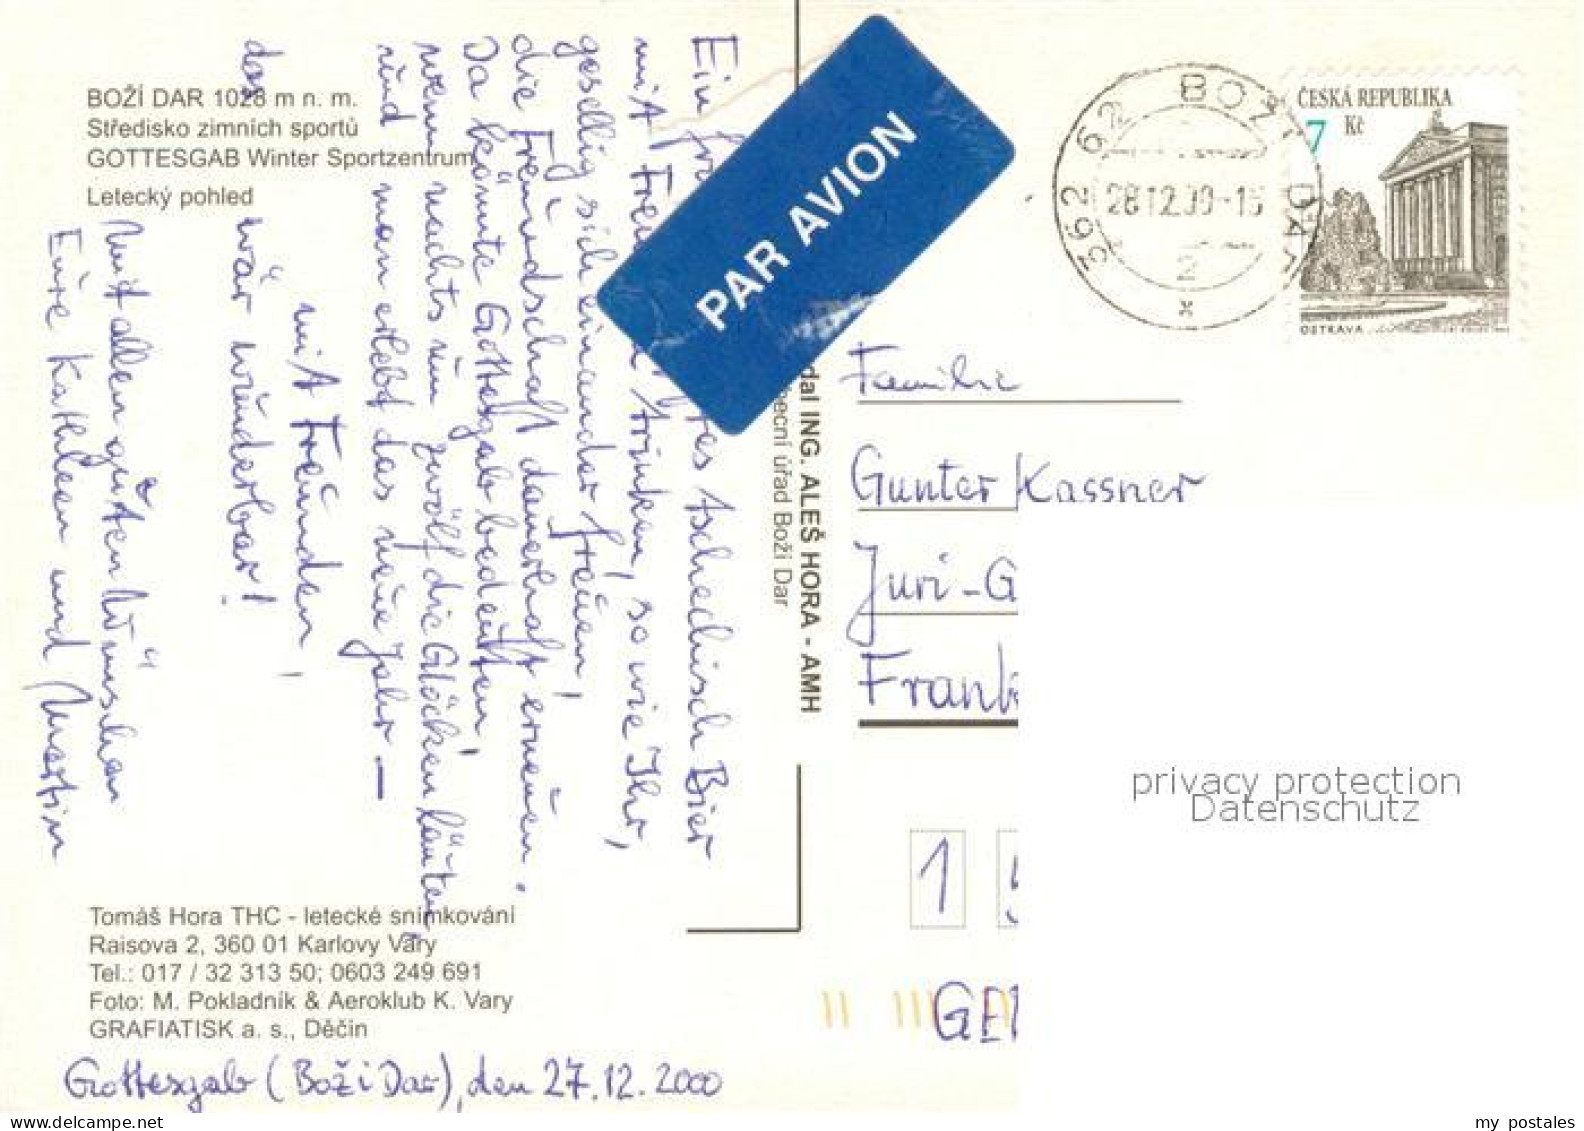 BOŽÍ DAR 1028 m n. m.
Středisko zimních sportů
GOTTESGAB Winter Sportzentrum
Letecký pohled
Ein
mit trinken, so wie Ihr,
gesellig sich einander freuen,
die Freundschaft dauerhaft erneuern.
Da könnte Gottesgab bedeuten,
wenn nachts um zwölf die Glöcken läuten,
und man erlebt das neue Jahr –
das wär wunderbar!
mit Freunden,
Mit allen guten Wünschen
Eure Kathleen und Martin
tschechisch Bier
PAR AVION
dal ING. ALEŠ HORA - AMH
ecní úřad Boží Dar
362 62 BOŽÍ DAR
28.12.00-15
2
x
ČESKÁ REPUBLIKA
7 Kč
OSTRAVA
Familie
Gunter Kassner
Juri-G
Frank
1
GER
privacy protection
Datenschutz
Tomáš Hora THC - letecké snímkování
Raisova 2, 360 01 Karlovy Vary
Tel.: 017 / 32 313 50; 0603 249 691
Foto: M. Pokladník & Aeroklub K. Vary
GRAFIATISK a. s., Děčín
Gottesgab (Boží Dar), den 27.12.2000
www.delcampe.net
my postales